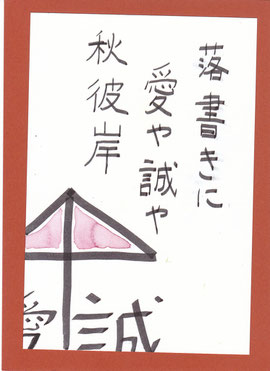 落書きに
愛や誠や
秋彼岸
愛
誠